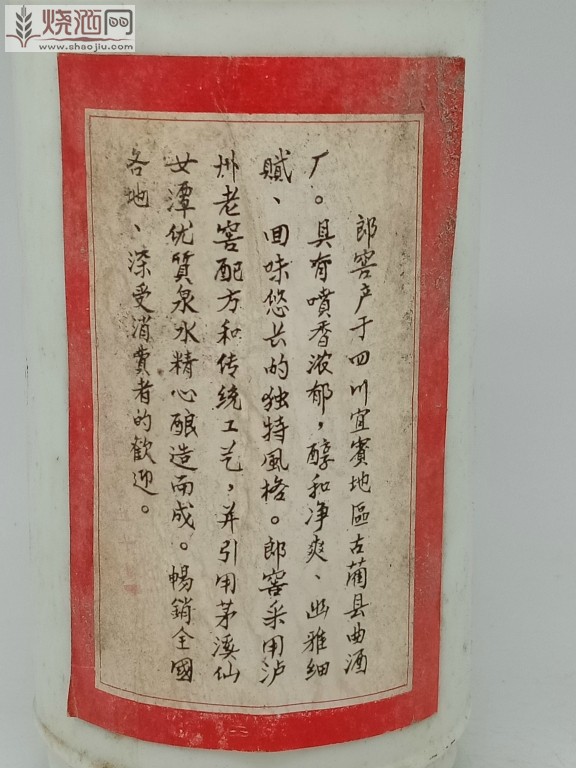 烧酒网
www.shaojiu.com
郎窖产于四川宜賓地區古蔺县曲酒
厂。具有噴香浓郁，醇和净爽、幽雅细
腻、回味悠长的独特風格。郎窖采用泸
州老窖配方和传统工艺，并引用茅溪仙
女潭优質泉水精心酿造而成。暢銷全國
各地、深受消費者的歡迎。